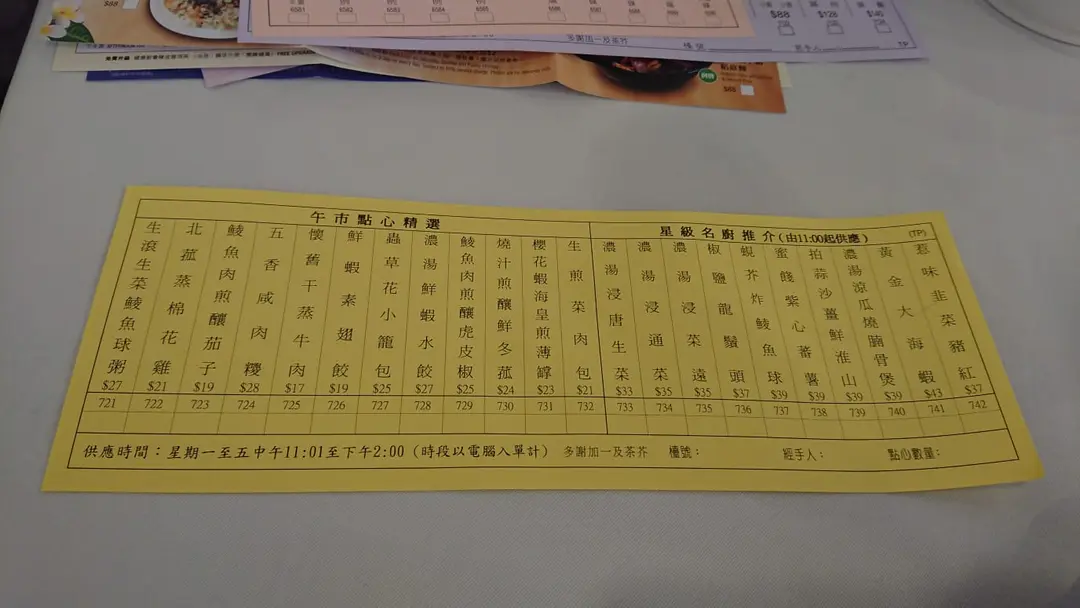 $88
6582
6583
6584
6585
$88
$128
多謝加一及茶芥
經手人
$65
午市點心精選
生滾生菜鯪魚球粥 $27 721
北菰蒸棉花雞 $21 722
鯪魚肉煎釀茄子 $19 723
五香咸肉糭 $28 724
懷舊干蒸牛肉 $17 725
鮮蝦素翅餃 $19 726
蟲草花小籠包 $25 727
濃湯鮮蝦水餃 $27 728
鯪魚肉煎釀虎皮椒 $25 729
燒汁煎釀鮮冬菰 $24 730
櫻花蝦海皇煎薄罉 $23 731
生煎菜肉包 $21 732
星級名廚推介(由11:00起供應) (TP)
濃湯浸唐生菜 $33 733
濃湯浸通菜 $35 734
濃湯浸菜遠 $35 735
椒鹽龍鬚頭 $37 736
蜆芥炸鯪魚球 $39 737
蜜餞紫心蕃薯 $39 738
拍蒜沙薑鮮淮山 $39 739
濃湯涼瓜燒腩骨煲 $39 740
黃金大海蝦 $43 741
惹味韭菜豬紅 $37 742
供應時間：星期一至五中午11:01至下午2:00 (時段以電腦入單計) 多謝加一及茶芥 檯號： 經手人： 點心數量：